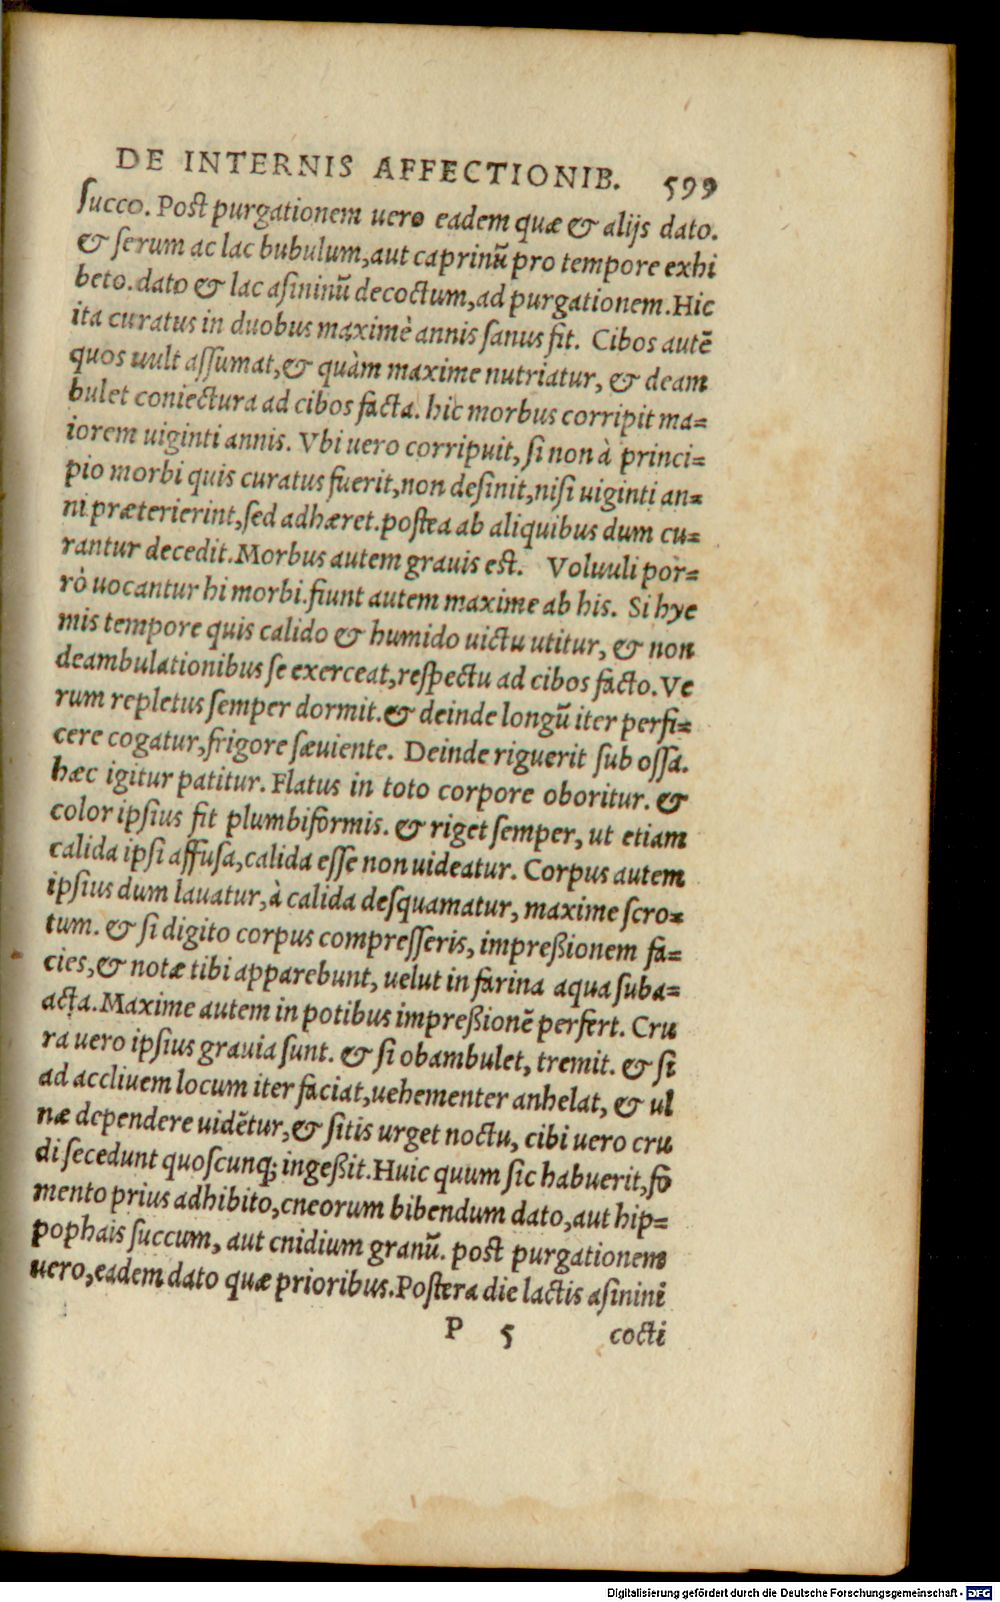 DE INTERNIS AFFECTIONIB. 599
succo. Post purgationem uero eadem quæ & alijs dato.
& serum ac lac bubulum, aut caprinũ pro tempore exhi
beto. dato & lac asininũ decoctum, ad purgationem. Hic
ita curatus in duobus maximè annis sanus fit. Cibos autẽ
quos uult assumat, & quàm maxime nutriatur, & deam
bulet coniectura ad cibos facta. hic morbus corripit ma=
iorem uiginti annis. Vbi uero corripuit, si non à princi=
pio morbi quis curatus fuerit, non desinit, nisi uiginti an=
ni præterierint, sed adhæret. postea ab aliquibus dum cu=
rantur decedit. Morbus autem grauis est. Voluuli por=
rò uocantur hi morbi. fiunt autem maxime ab his. Si hye
mis tempore quis calido & humido uictu utitur, & non
deambulationibus se exerceat, respectu ad cibos facto. Ve
rum repletus semper dormit. & deinde longũ iter perfi=
cere cogatur, frigore sæuiente. Deinde riguerit sub ossa.
hæc igitur patitur. Flatus in toto corpore oboritur. &
color ipsius fit plumbiformis. & riget semper, ut etiam
calida ipsi affusa, calida esse non uideatur. Corpus autem
ipsius dum lauatur, à calida desquamatur, maxime scro=
tum. & si digito corpus compresseris, impreßionem fa=
cies, & notæ tibi apparebunt, uelut in farina aqua suba=
acta. Maxime autem in potibus impreßionẽ perfert. Cru
ra uero ipsius grauia sunt. & si obambulet, tremit. & si
ad accliuem locum iter faciat, uehementer anhelat, & ul
næ dependere uidẽtur, & sitis urget noctu, cibi uero cru
di secedunt quoscunq; ingeßit. Huic quum sic habuerit, fo
mento prius adhibito, cneorum bibendum dato, aut hip=
pophais succum, aut cnidium granũ. post purgationem
uero, eadem dato quæ prioribus. Postera die lactis asinini
P 5 cocti
Digitalisierung gefördert durch die Deutsche Forschungsgemeinschaft - DFG